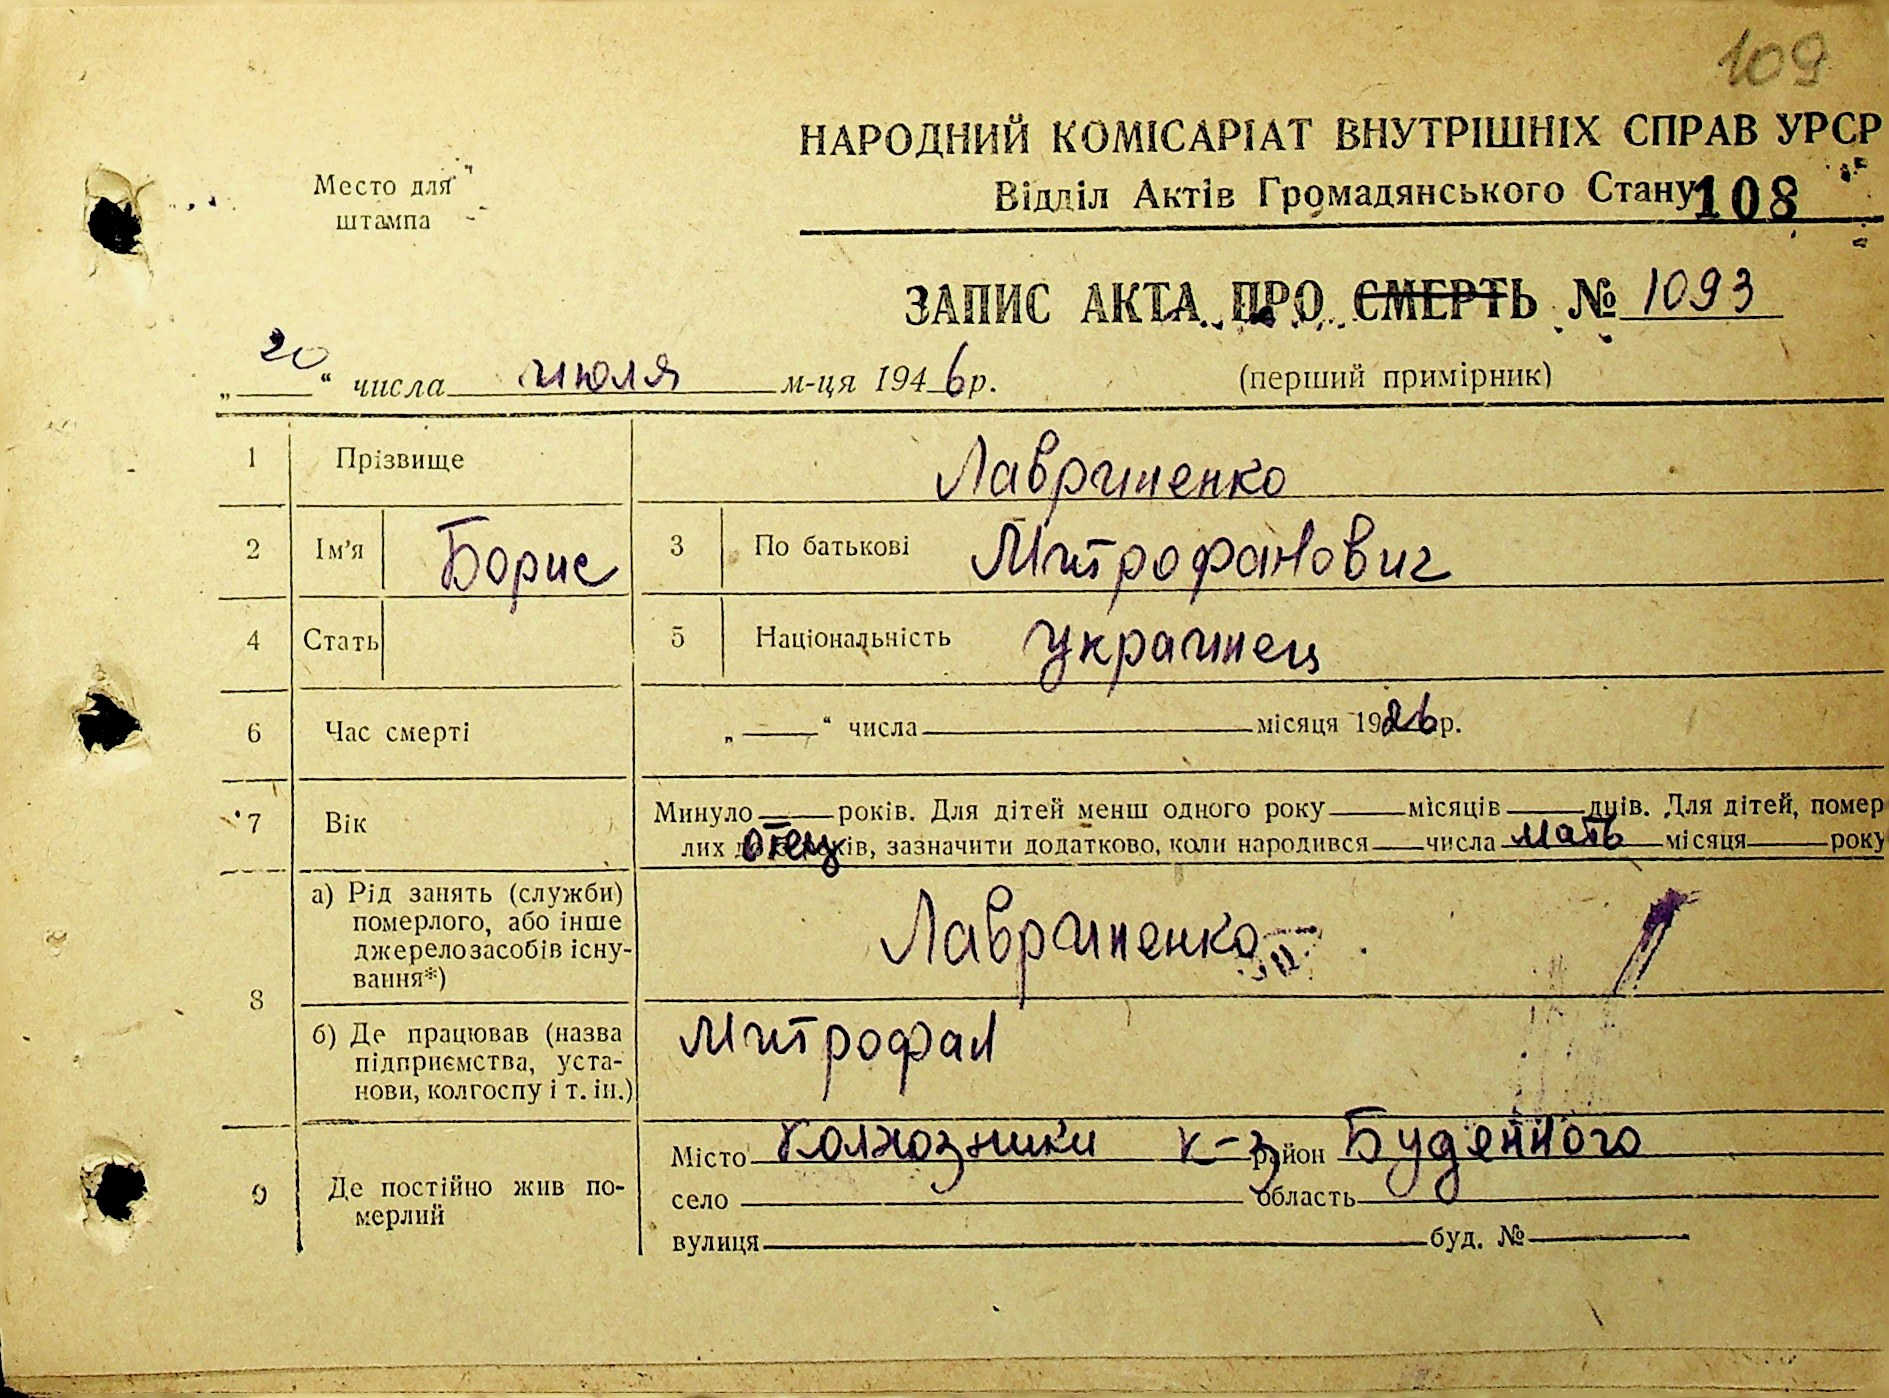 109
НАРОДНИЙ КОМІСАРІАТ ВНУТРІШНІХ СПРАВ УРСР
Место для штампа
Відділ Актів Громадянського Стану 108
ЗАПИС АКТА ПРО СМЕРТЬ № 1093
„20“ числа июля м-ця 1946 р. (перший примірник)
1 Прізвище Лавриненко
2 Ім’я Борис 3 По батькові Митрофанович
4 Стать 5 Національність украинец
6 Час смерті „ “ числа місяця 1926 р.
7 Вік Минуло років. Для дітей менш одного року місяців днів. Для дітей, помер
лих отец ків, зазначити додатково, коли народився числа мать місяця року
8 а) Рід занять (служби)
померлого, або інше
джерело засобів існу-
вання*)
Лавриненко
б) Де працював (назва
підприємства, уста-
нови, колгоспу і т. ін.)
Митрофан
9 Де постійно жив по-
мерлий
Місто колхозники к-з район Буденного
село область
вулиця буд. №